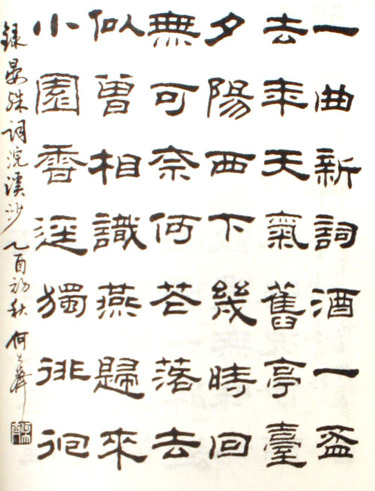 一曲新詞酒一盃
去年天氣舊亭臺
夕陽西下幾時回
無可奈何花落去
似曾相識燕歸來
小園香逕獨徘徊
録晏殊詞浣溪沙 乙酉初秋 何